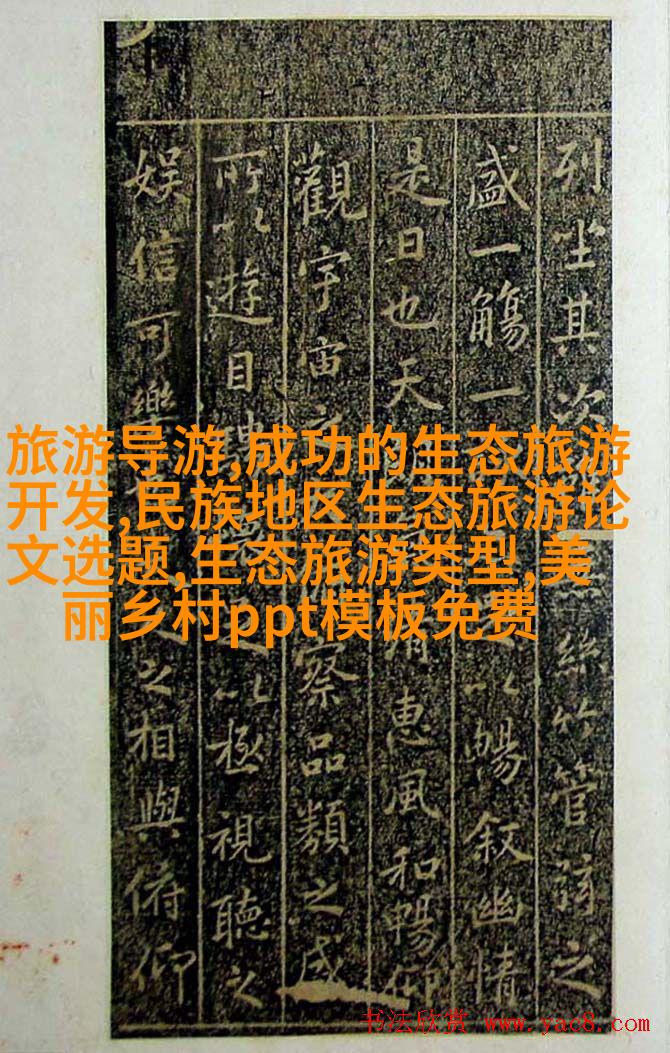 列坐其次絲竹管弦之
盛一觴一以暢叙幽情
是日也天清惠風和暢仰
觀宇宙之察品類之盛
所以遊目以極視聽之
娱信可樂之相與俯仰
旅游导游,成功的生态旅游
开发,民族地区生态旅游论
文选题,生态旅游类型,美
丽乡村ppt模板免费
书法欣赏 www.yac8.com